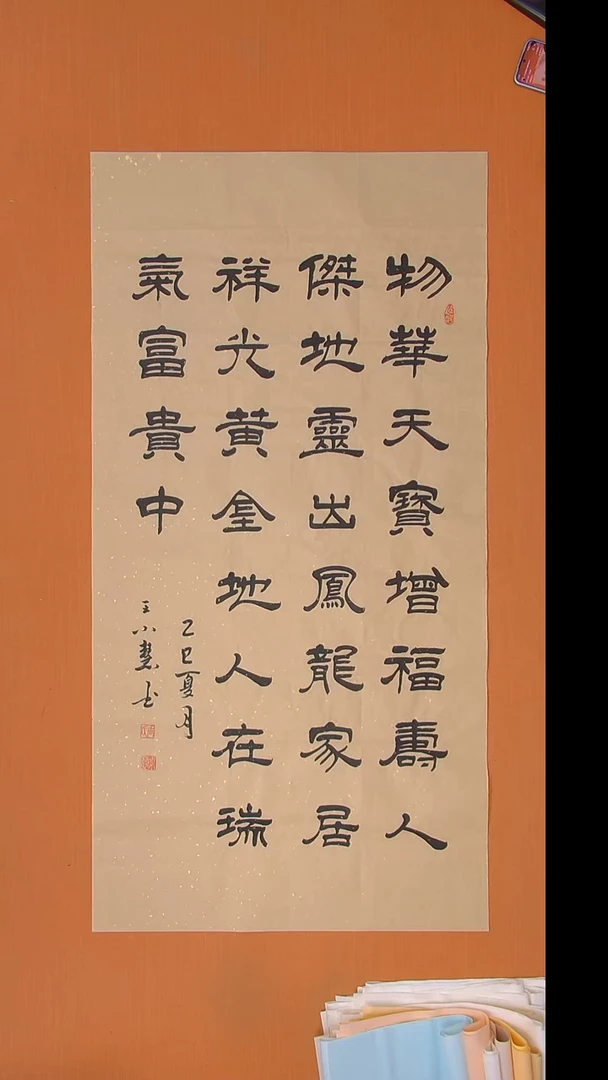 物華天寶增福壽人
傑地靈出鳳龍家居
祥光黄金地人在瑞
氣富貴中
乙巳夏月
王小慧书